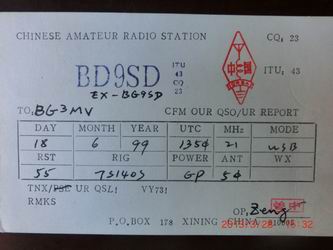 CHINESE AMATEUR RADIO STATION CQ, 23
BD9SD ITU 43 CQ 23 ITU, 43
EX-BG9SD
TO, BG3MV CFM OUR QSO/UR REPORT
DAY MONTH YEAR UTC MHz MODE
18 6 99 1354 21 USB
RST RIG POWER ANT WX
55 TS140S GP 54
TNX/PSE UR QSL! VY73!
RMKS
OP, Zeng
P.O.BOX 178 XINING CHINA 810005